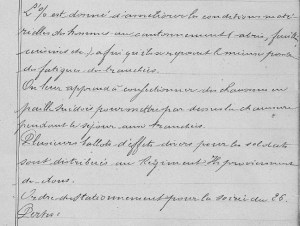 L'o/ est donné d'améliorer les conditions maté-
rielles des hommes au cantonnement (abris, feuillées,
cuisines &) afin qu'ils se reposent le mieux possible
des fatigues des tranchées.
On leur apprend à confectionner des chaussons en
paille tressée pour mettre par dessus la chaussure
pendant le séjour aux tranchées.
Plusieurs ballots d'effets divers pour les soldats
sont distribués au Régiment. Ils proviennent
de dons.
Ordre de stationnement pour la soirée du 26.
Pertes: